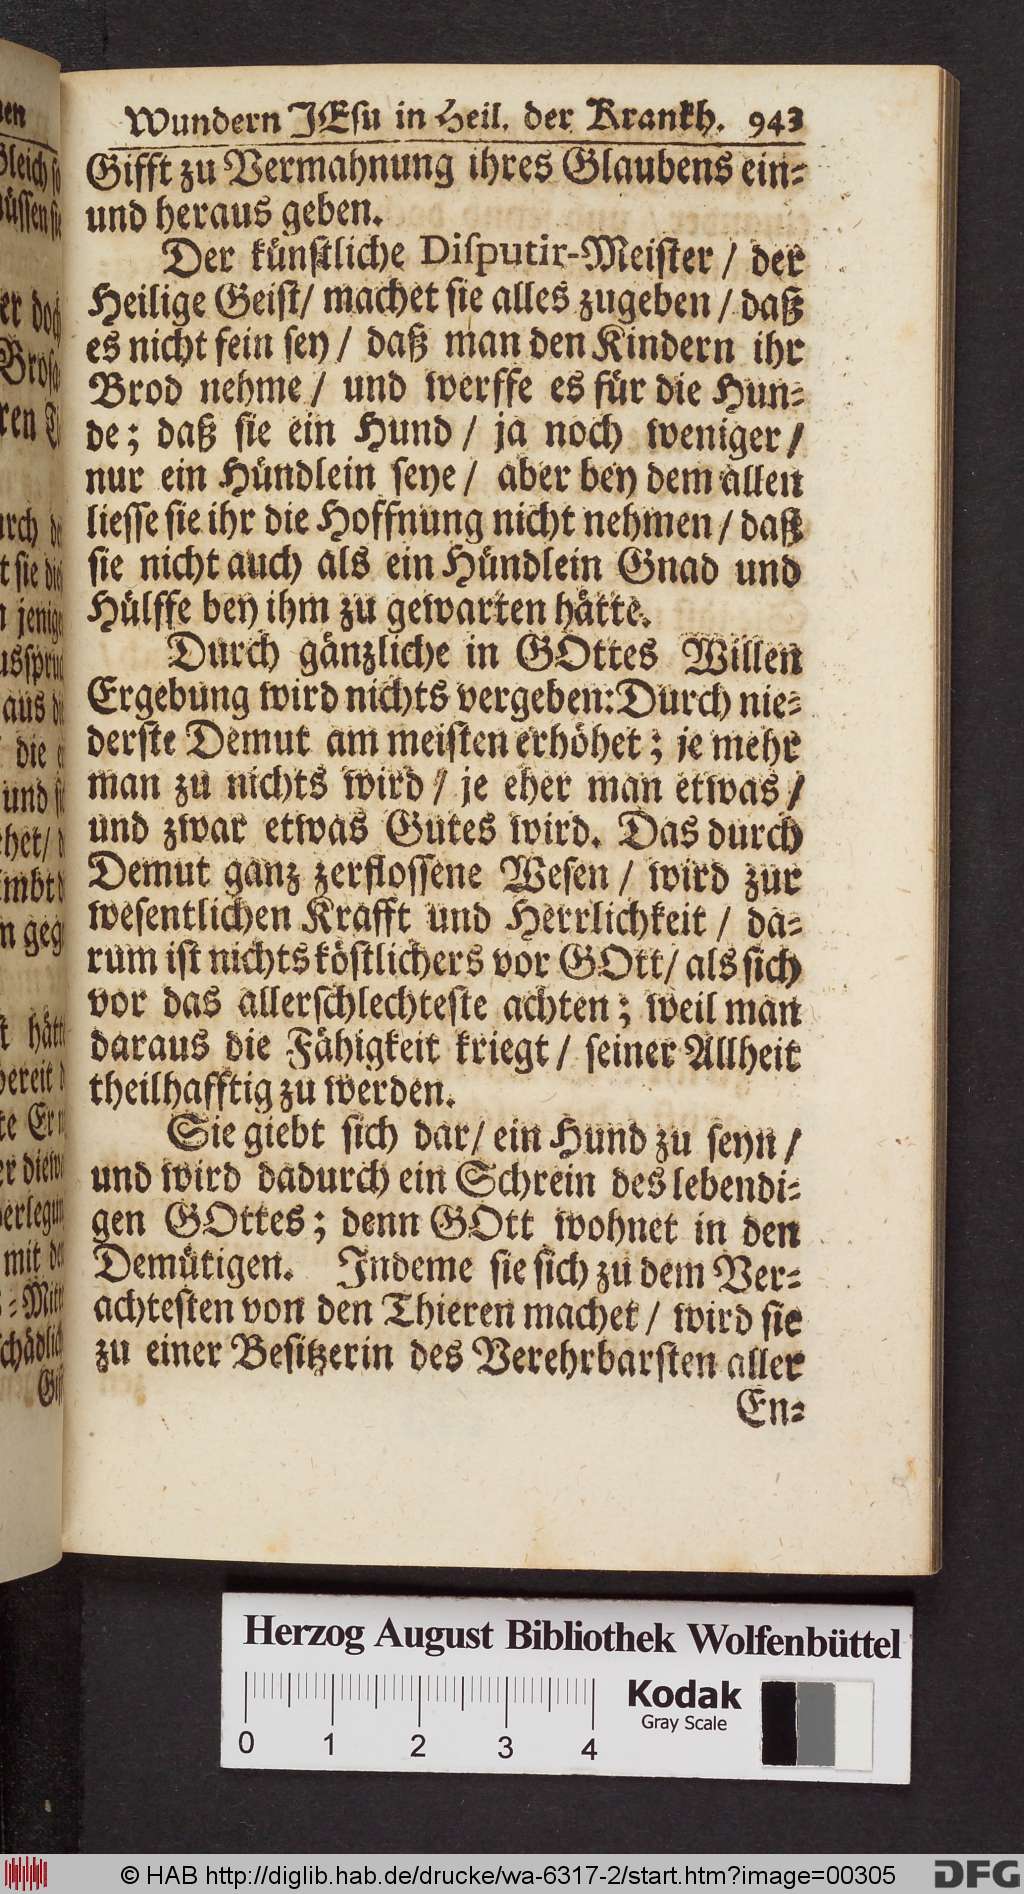 Wundern JEsu in Heil. der Krankh. 943
Gifft zu Vermahnung ihres Glaubens ein-
und heraus geben.
Der künstliche Disputir-Meister / der
Heilige Geist/ machet sie alles zugeben / daß
es nicht fein sey / daß man den Kindern ihr
Brod nehme / und werffe es für die Hun-
de; daß sie ein Hund / ja noch weniger /
nur ein Hündlein seye / aber bey dem allen
liesse sie ihr die Hoffnung nicht nehmen / daß
sie nicht auch als ein Hündlein Gnad und
Hülffe bey ihm zu gewarten hätte.
Durch gänzliche in GOttes Willen
Ergebung wird nichts vergeben: Durch nie-
derste Demut am meisten erhöhet; je mehr
man zu nichts wird / je eher man etwas /
und zwar etwas Gutes wird. Das durch
Demut ganz zerflossene Wesen / wird zur
wesentlichen Krafft und Herrlichkeit / da-
rum ist nichts köstlichers vor GOtt/ als sich
vor das allerschlechteste achten; weil man
daraus die Fähigkeit kriegt / seiner Allheit
theilhafftig zu werden.
Sie giebt sich dar/ ein Hund zu seyn /
und wird dadurch ein Schrein des lebendi-
gen GOttes; denn GOtt wohnet in den
Demütigen. Indeme sie sich zu dem Ver-
achtesten von den Thieren machet / wird sie
zu einer Besitzerin des Verehrbarsten aller
En-
Herzog August Bibliothek Wolfenbüttel
0 1 2 3 4
Kodak
Gray Scale
© HAB http://diglib.hab.de/drucke/wa-6317-2/start.htm?image=00305
DFG